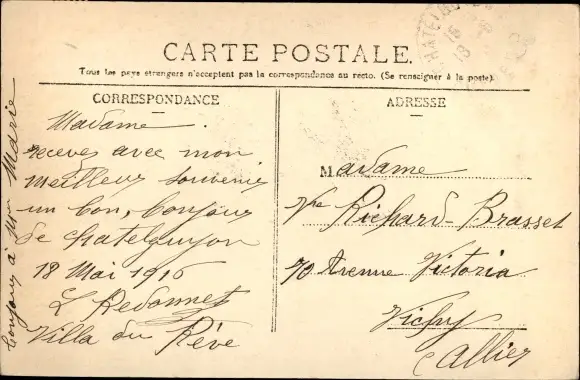 CARTE POSTALE.
Tous les pays étrangers n'acceptent pas la correspondance au recto. (Se renseigner à la poste).
CORRESPONDANCE
Madame.
recevez avec mon
meilleur souvenir
un bon, bonjour
de chatelguyon
18 Mai 1916
L Redonnet
Villa du Rêve
bonjour à Mme Marie
ADRESSE
Madame
Vve Richard-Brasset
70 Avenue Victoria
Vichy
Allier